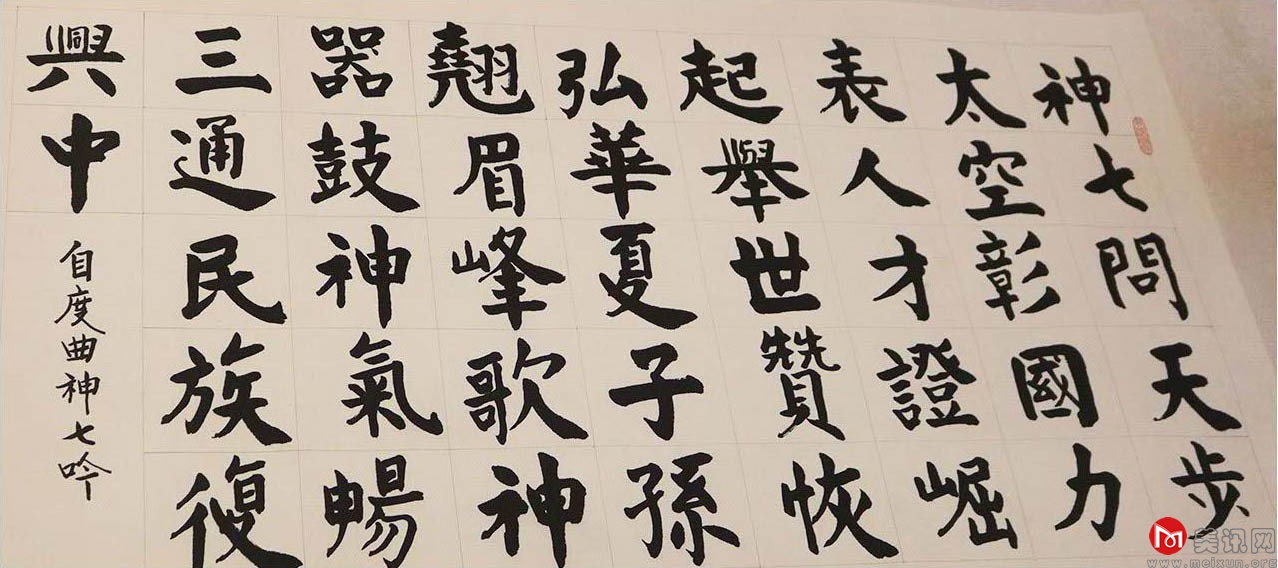 神七問天步
太空彰國力
表人才證崛
起舉世贊恢
弘華夏子孫
翹眉峰歌神
器鼓神氣暢
三通民族復
興中
自度曲神七吟
美讯网
www.meixun.org